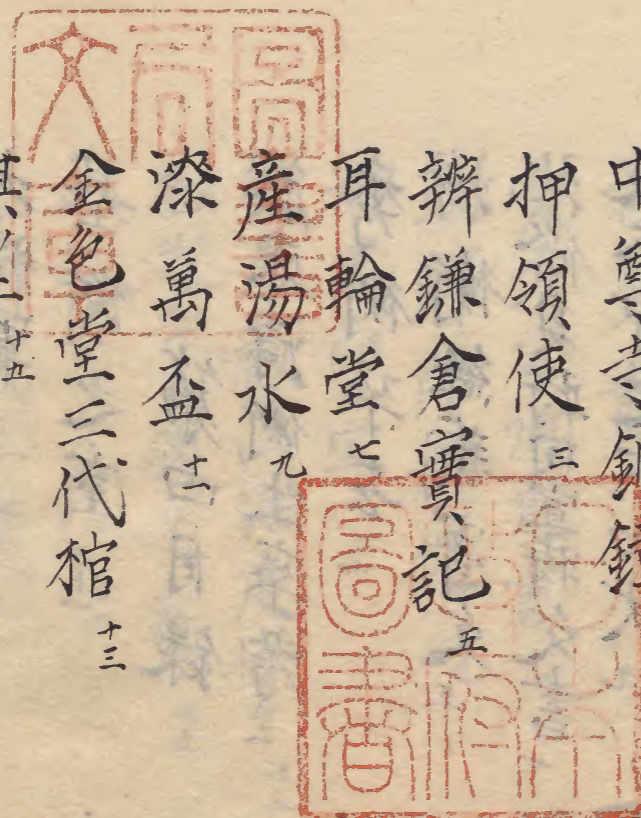 中尊寺
押領使 三
辨鎌倉實記 五
耳輪堂 七
産湯水 九
漆萬盃 十一
金色堂三代棺 十三
十五
圖書